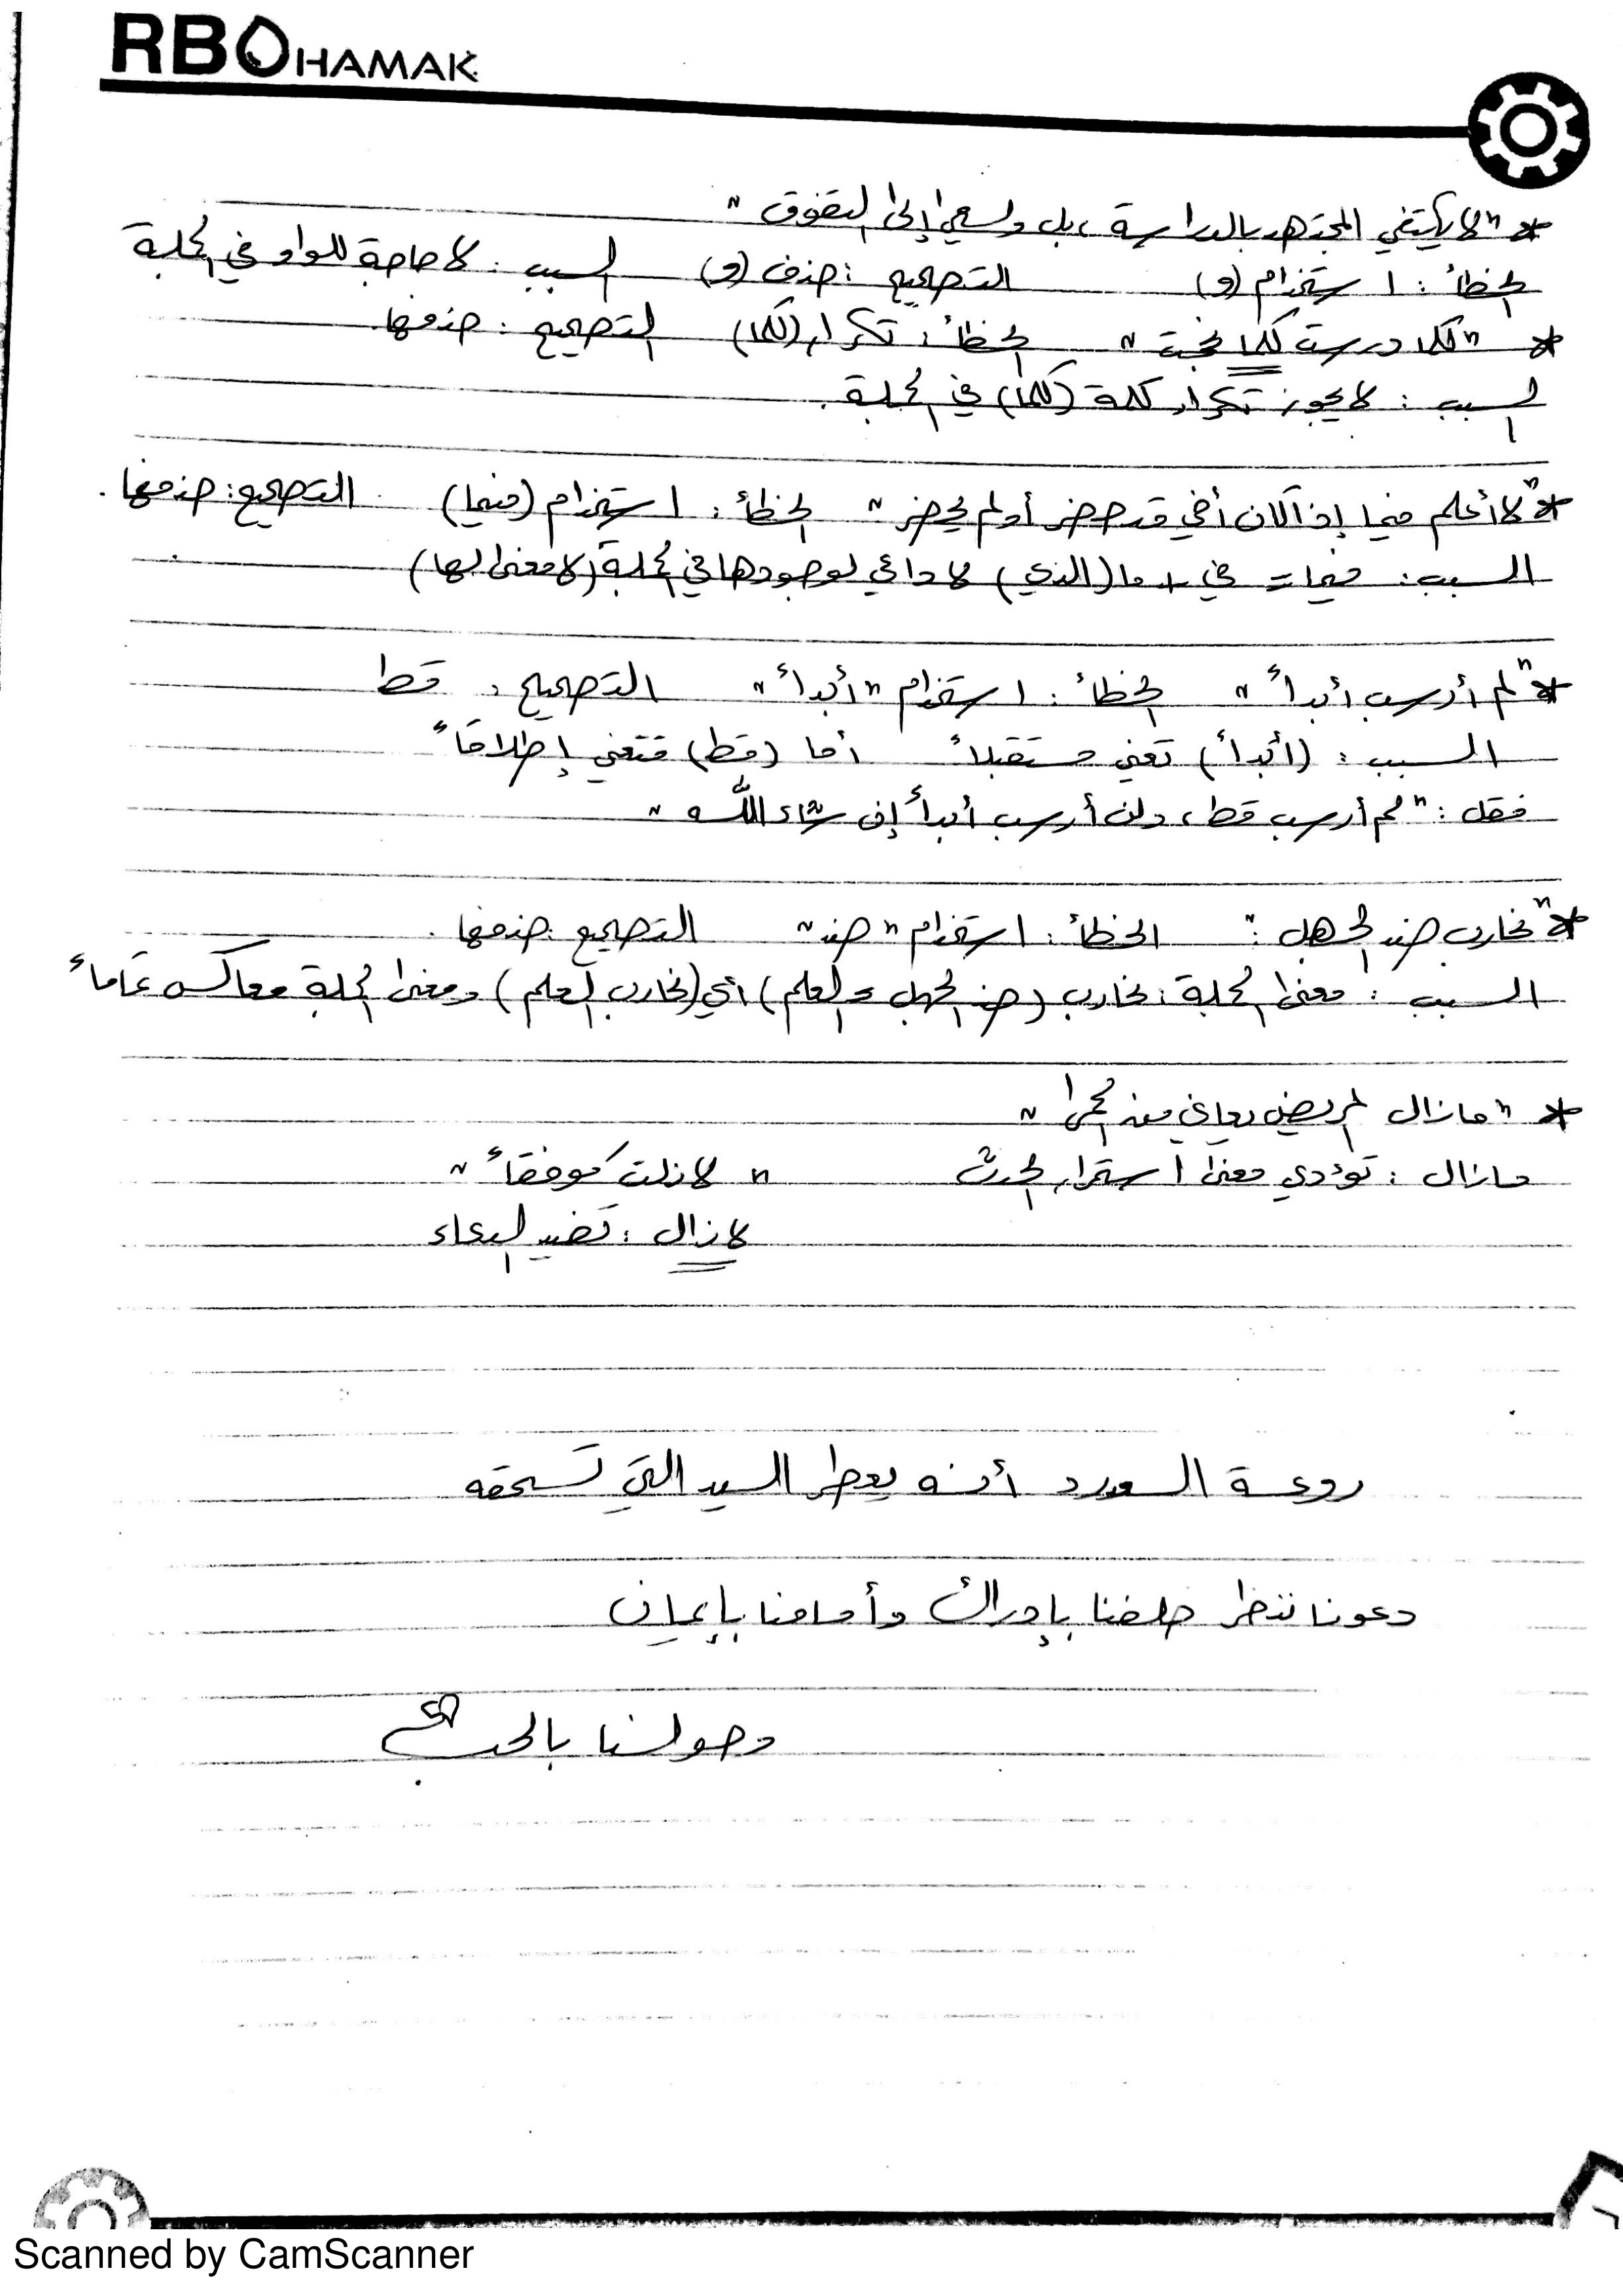 RBOHAMAK
* "لا يكتفي المجتهد بالدراسة، بل ويسعى إلى التفوق"
الخطأ: استخدام (و) التصحيح: حذف (و) السبب: لا حاجة للواو في الجملة
* "كلما درست كلما نجحت" الخطأ: تكرار (كلما) التصحيح: حذفها
السبب: لا يجوز تكرار كلمة (كلما) في الجملة.
* "لا أعلم فيما إذا كان أخي قد حضر أو لم يحضر" الخطأ: استخدام (فيما) التصحيح: حذفها.
السبب: فيما = في + ما (الذي) لا داعي لوجودها في الجملة (لا معنى لها)
* "لم أرسب أبداً" الخطأ: استخدام "أبداً" التصحيح: قط
السبب: (أبداً) تعني مستقبلاً أما (قط) فتعني إطلاقاً
فقل: "لم أرسب قط، ولن أرسب أبداً إن شاء الله"
* "نحارب ضد الجهل" الخطأ: استخدام "ضد" التصحيح: حذفها.
السبب: معنى الجملة: نحارب (ضد الجهل = العلم) أي (نحارب العلم) ومعنى الجملة معاكس تماماً
* "مازال المريض يعاني من الحمى"
مازال: تؤدي معنى استمرار الحدث " لازلت موفقاً"
لازال: تفيد الدعاء
روعة الورد أنه يعطر اليد التي تسحقه
دعونا ننظر خلفنا بإدراك وأمامنا بإيمان
وحولنا بالحب
Scanned by CamScanner